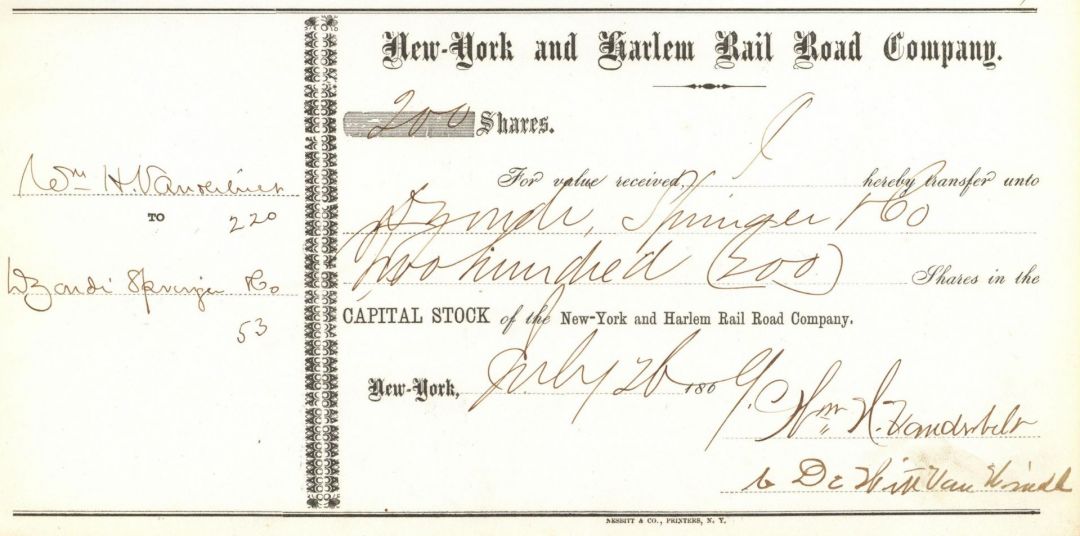 Wm H. Vanderbilt
TO
220
Springer & Co
53
New-York and Harlem Rail Road Company.
200 Shares.
For value received, I hereby transfer unto
Springer & Co
Two hundred (200) Shares in the
CAPITAL STOCK of the New-York and Harlem Rail Road Company.
New-York, July 26 1869.
Wm H. Vanderbilt
De Witt Van
NESBITT & CO., PRINTERS, N. Y.